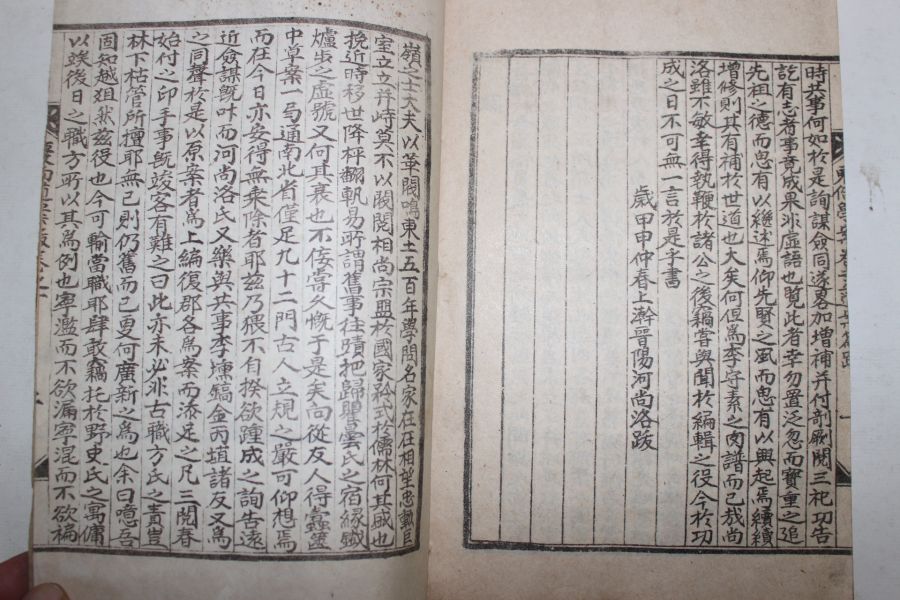 時共事何如於是詢謀僉同遂畧加增補幷付剞劂閱三祀功告
訖有志者事竟成果非虛語也覽此者幸勿置泛忽而寶重之追
先祖之德而思有以繼述焉仰先賢之風而思有以興起焉續續
增修則其有補於世道也大矣何但爲李守素之肉譜而已哉尚
洛雖不敏幸得執鞭於諸公之後竊嘗與聞於編輯之役今於功
成之日不可無一言於是乎書
歲甲申仲春上澣晉陽河尚洛跋
嶺之士大夫以華閥鳴東土五百年學問名家在在相望忠勳巨
室立立幷峙莫不以閥閱相尚宗盟於國家矜式於儒林何其盛也
挽近時移世降枰翻軌易所謂舊事往蹟把歸曇雲氏之宿緣鐵
爐步之虛號又何其衰也不佞嘗久慨于是矣向從友人得蠹篋
中草案一局通南北省僅足九十二門古人立規之嚴可仰想焉
而在今日亦安得無乘除者耶玆乃猥不自揆欲踵成之詢古遠
近僉謀旣叶而河尚洛氏又樂與共事李壎鎬金丙埴諸友又爲
之同聲於是以原案者爲上編復郡各爲案而添足之凡三閱春
始付之印手事旣竣客有難之曰此亦未必非古職方氏之責豈
林下枯管所擅耶無已則仍舊而已更何廣新之爲也余曰噫吾
固知越俎然玆役也今可輸當職耶肆敢竊托於野史氏之寓傭
以竢後日之職方所以其爲例也寧濫而不欲漏寧混而不欲褊